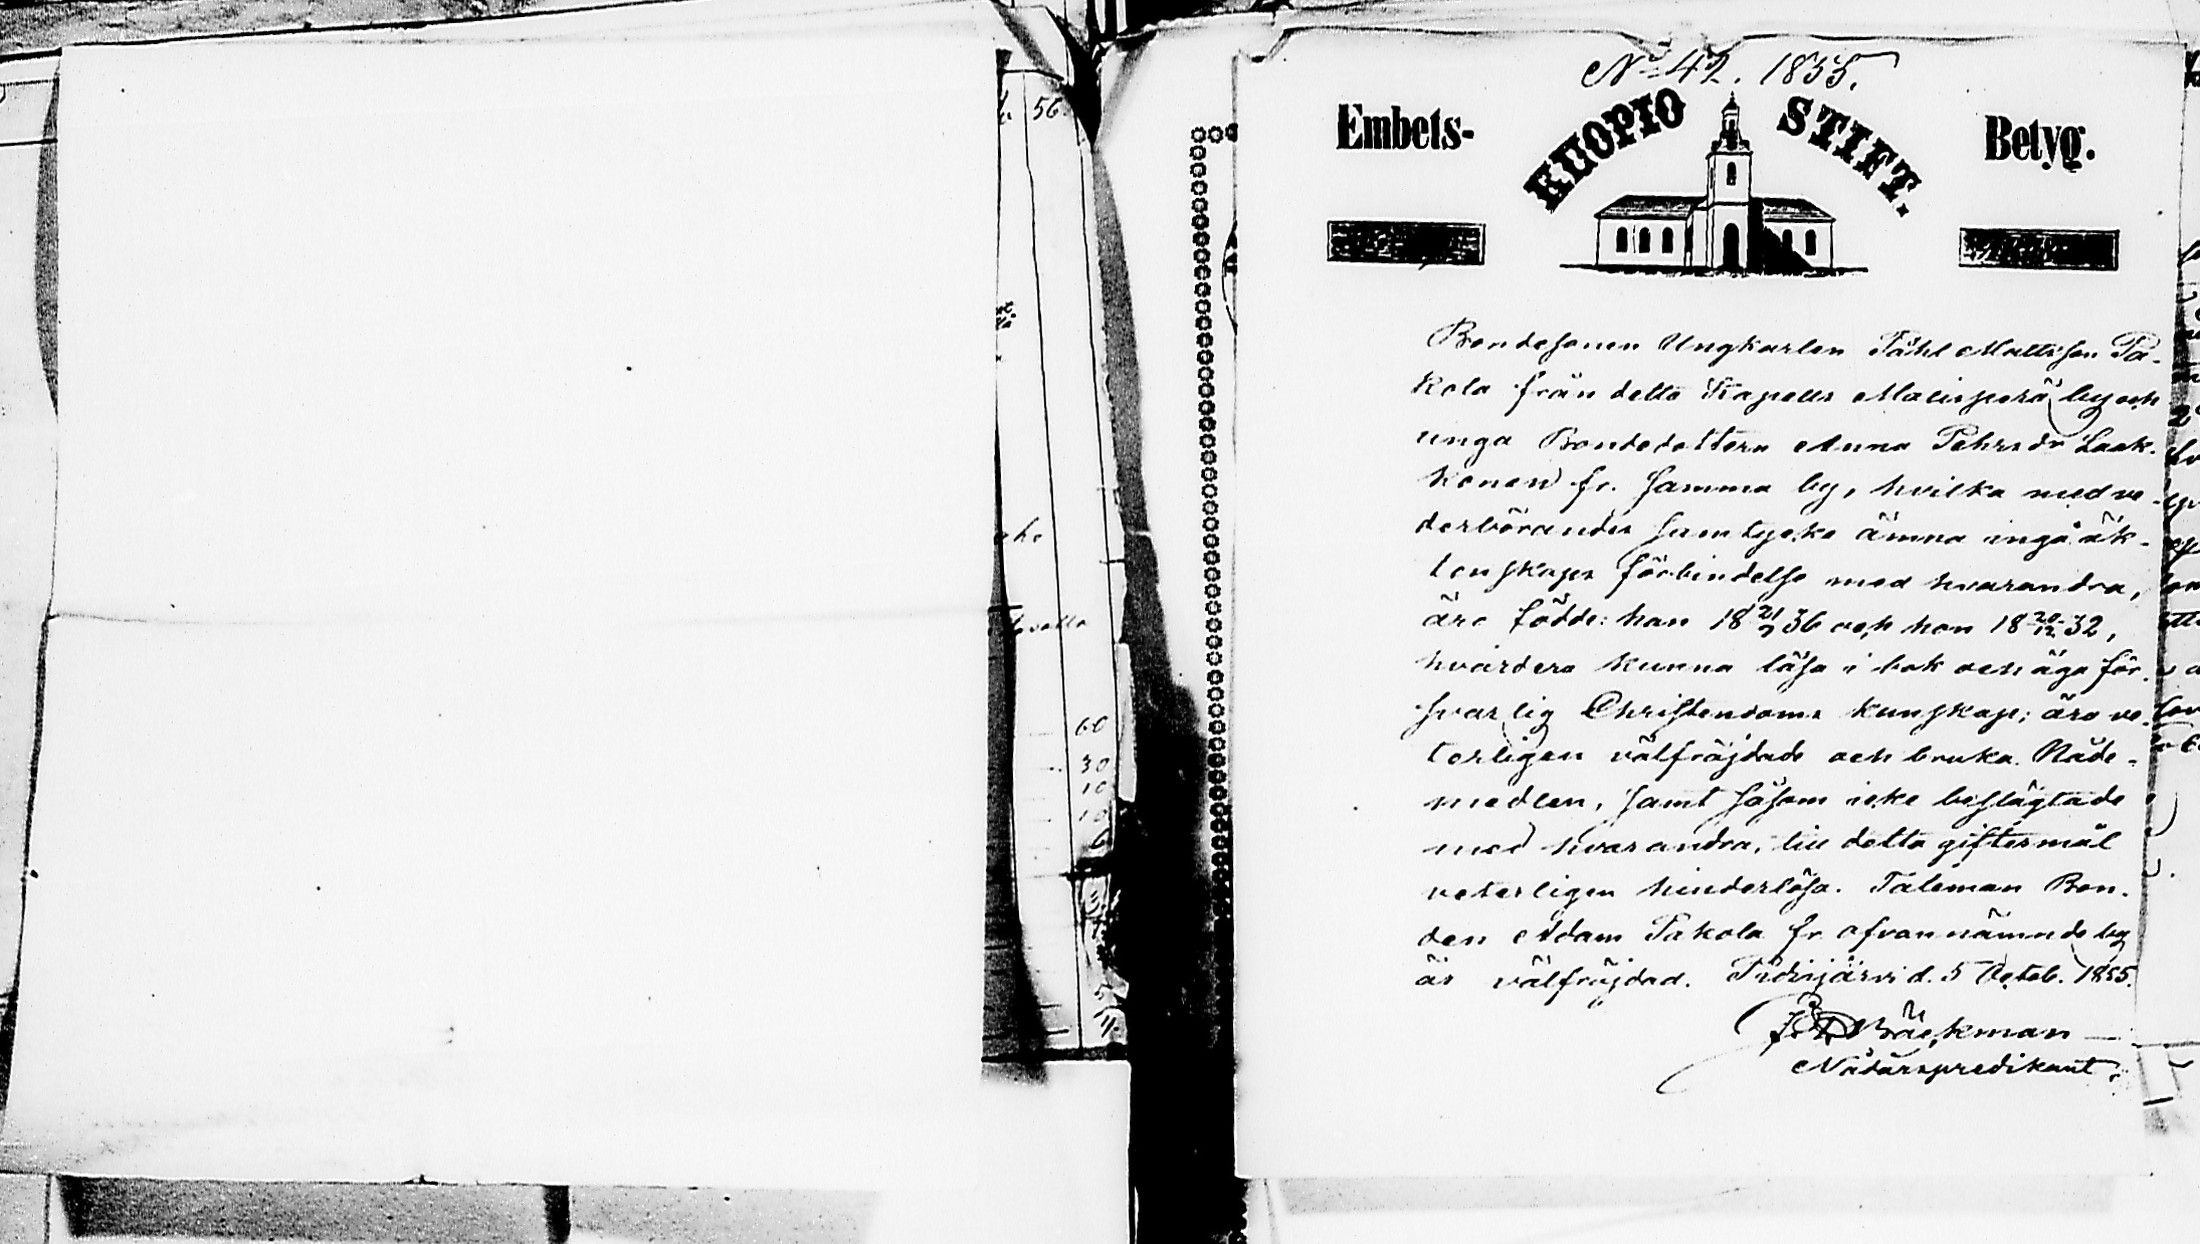 56
No 42. 1855.
Embets-
KUOPIO STIFT.
Betyg.
Bondesonen Ungkarlen Påhl Mattsson Pa-
kola från detta Kapells Maliisperä by och
unga Bondedottern Anna Pehrsdr Laak-
konen fr. samma by, hvilka med ve-
derbörandes samtycke ämna ingå äk-
tenskaps förbindelse med hvarandra,
äro födde: han 18 21/7 36 och hon 18 20/12 32,
hvardera kunna läsa i bok och äga för-
svarlig Christendoms kunskap; äro ve-
terligen välfräjdade och bruka Nåde-
medlen, samt såsom icke beslägtade
med hvarandra, till detta giftermål
veterligen hinderlösa. Taleman Bon-
den Adam Pakola fr ofvannämnde by
är välfräjdad. Pidisjärvi d. 5 Octob. 1855.
Bäckman
Nådårspredikant.
60
30
10
10